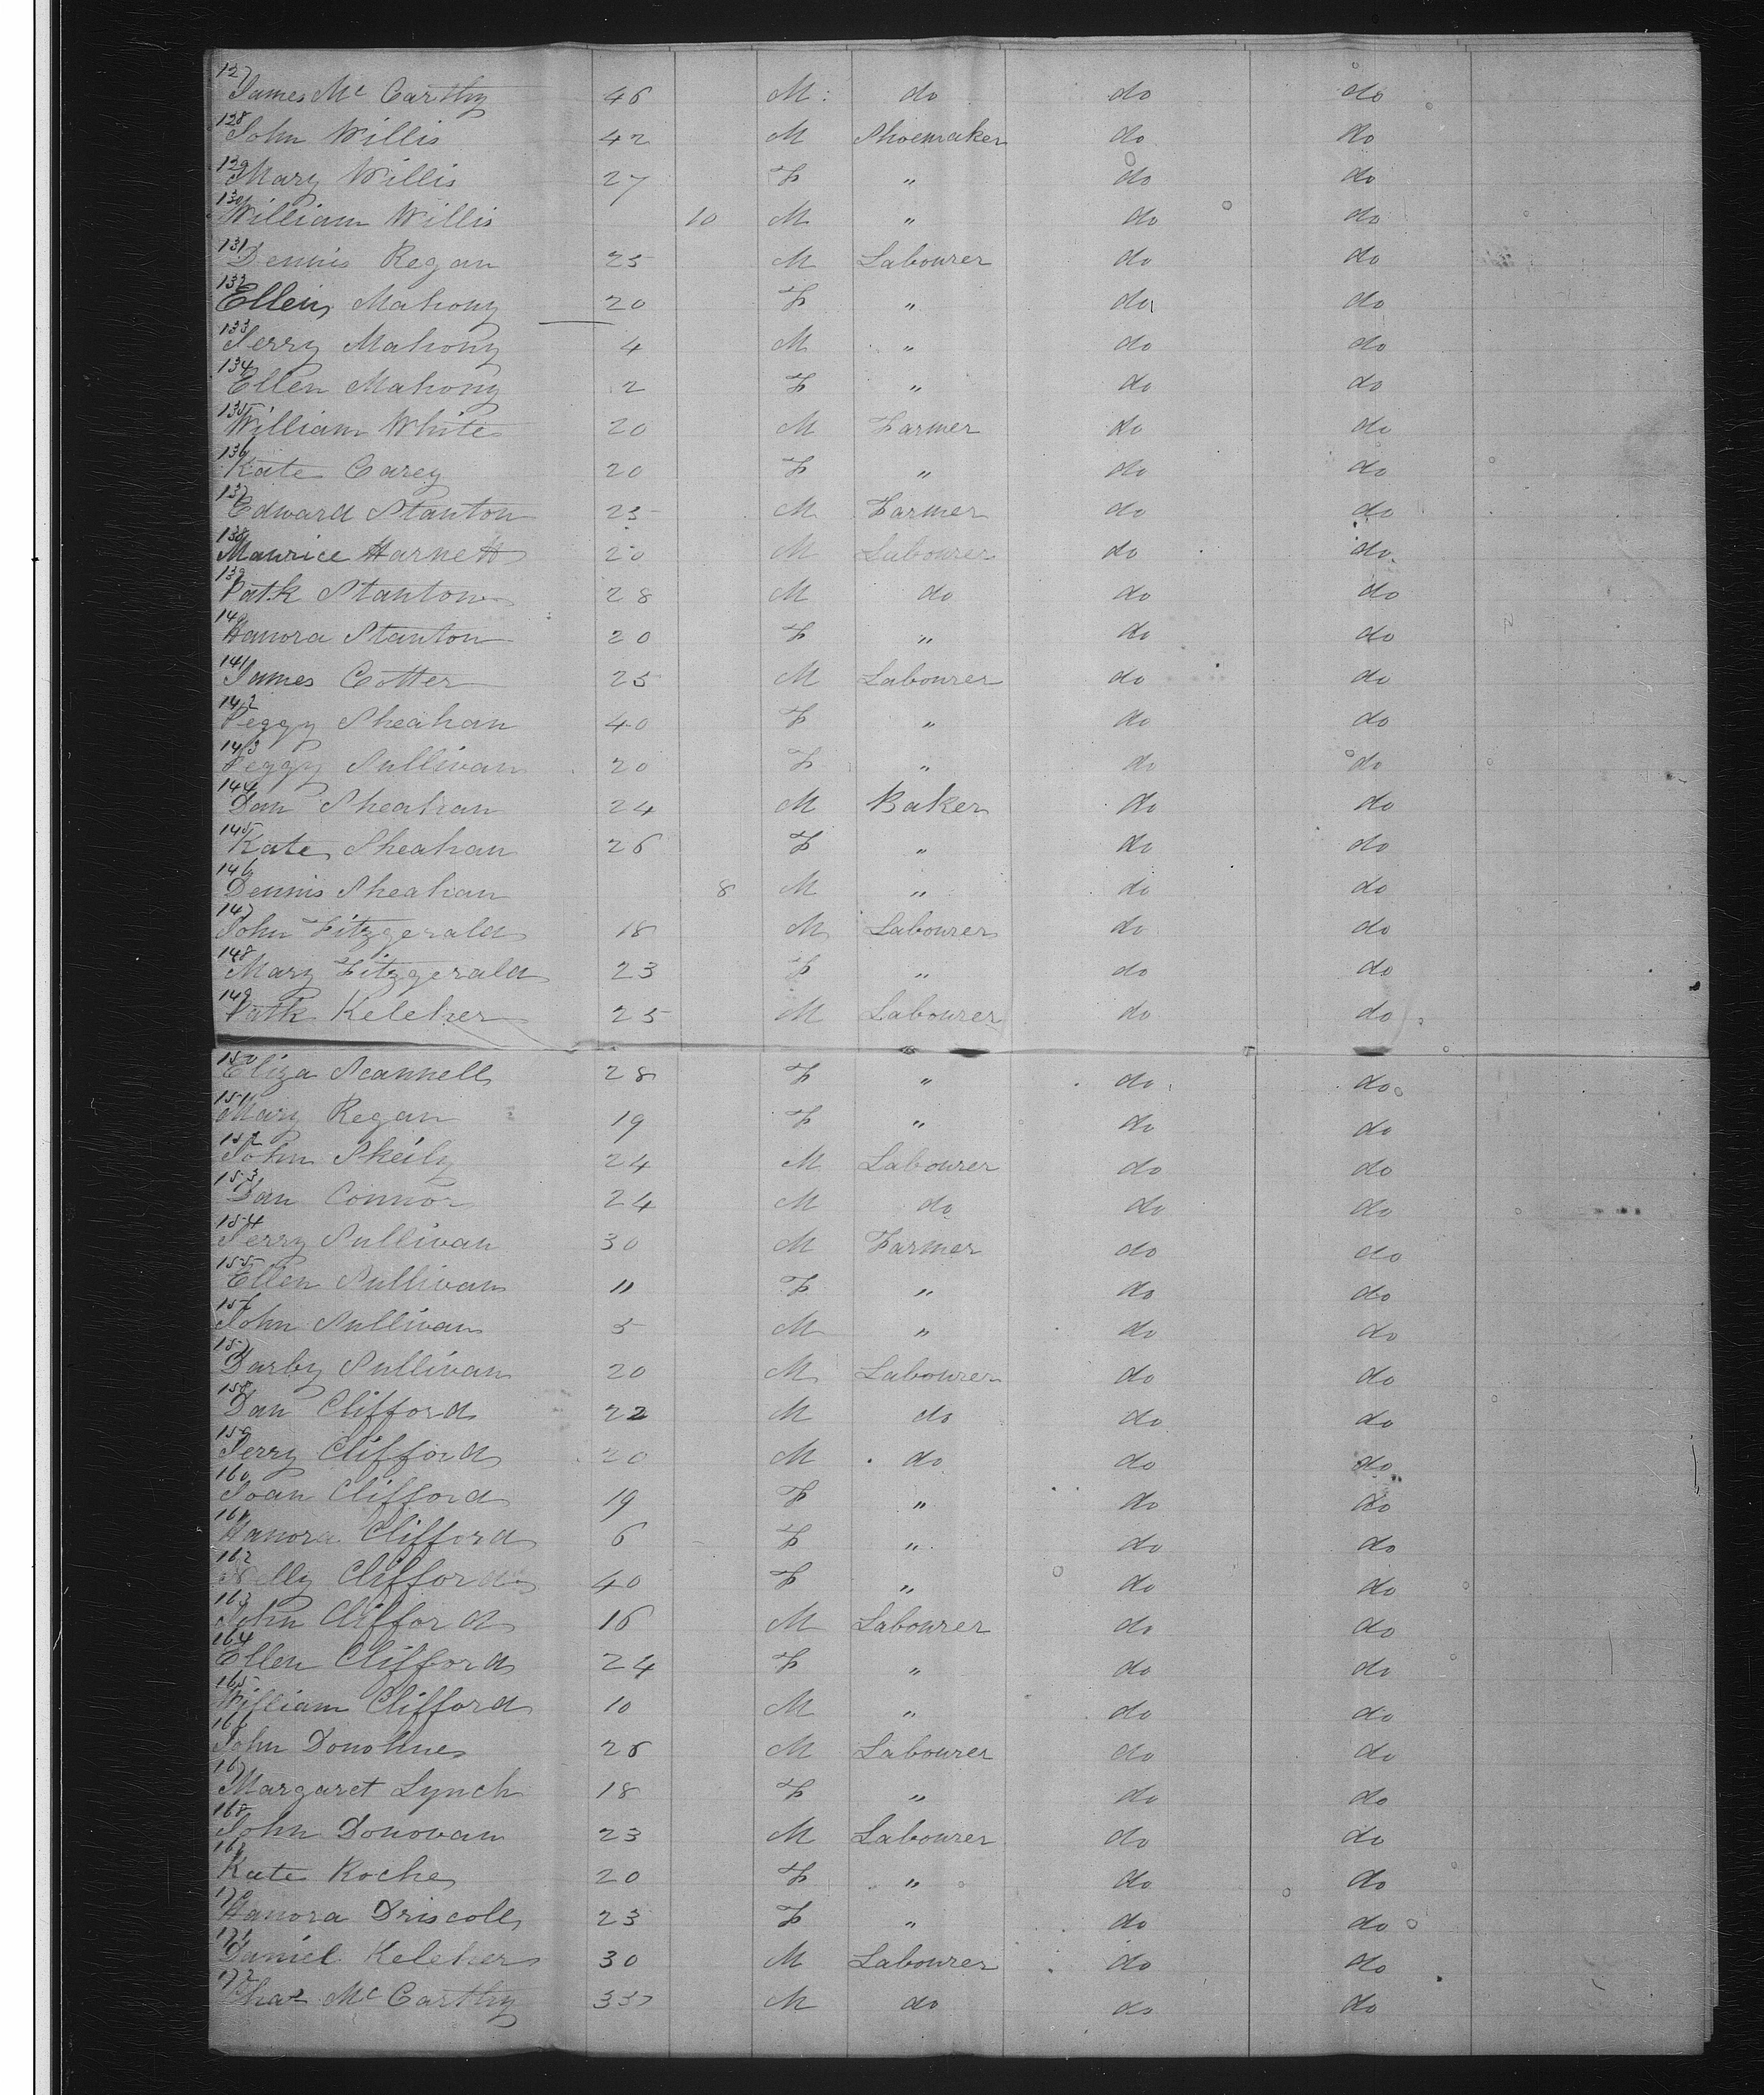 127 James Mc Carthy 46 M do do do
128 John Willis 42 M Shoemaker do do
129 Mary Willis 27 F " do do
130 William Willis 10 M " do do
131 Dennis Regan 25 M Labourer do do
132 Ellen Mahony 20 F " do do
133 Jerry Mahony 4 M " do do
134 Ellen Mahony 2 F " do do
135 William White 20 M Farmer do do
136 Kate Carey 20 F " do do
137 Edward Stanton 25 M Farmer do do
138 Maurice Harnett 20 M Labourer do do
139 Patk Stanton 28 M do do do
140 Hanora Stanton 20 F " do do
141 James Cotter 25 M Labourer do do
142 Peggy Sheahan 40 F " do do
143 Peggy Sullivan 20 F " do do
144 Dan Sheahan 24 M Baker do do
145 Kate Sheahan 26 F " do do
146 Dennis Sheahan 8 M " do do
147 John Fitzgerald 18 M Labourer do do
148 Mary Fitzgerald 23 F " do do
149 Patk Keleher 25 M Labourer do do
150 Eliza Scannell 28 F " do do
151 Mary Regan 19 F " do do
152 John Skeily 24 M Labourer do do
153 Dan Connor 24 M do do do
154 Jerry Sullivan 30 M Farmer do do
155 Ellen Sullivan 11 F " do do
156 John Sullivan 5 M " do do
157 Darby Sullivan 20 M Labourer do do
158 Dan Clifford 22 M do do do
159 Jerry Clifford 20 M do do do
160 Joan Clifford 19 F " do do
161 Hanora Clifford 6 F " do do
162 Nelly Clifford 40 F " do do
163 John Clifford 16 M Labourer do do
164 Ellen Clifford 24 F " do do
165 William Clifford 10 M " do do
166 John Donohue 26 M Labourer do do
167 Margaret Lynch 18 F " do do
168 John Donovan 23 M Labourer do do
169 Kate Roche 20 F " do do
170 Hanora Driscoll 23 F " do do
171 Daniel Keleher 30 M Labourer do do
172 Chas Mc Carthy M do do do